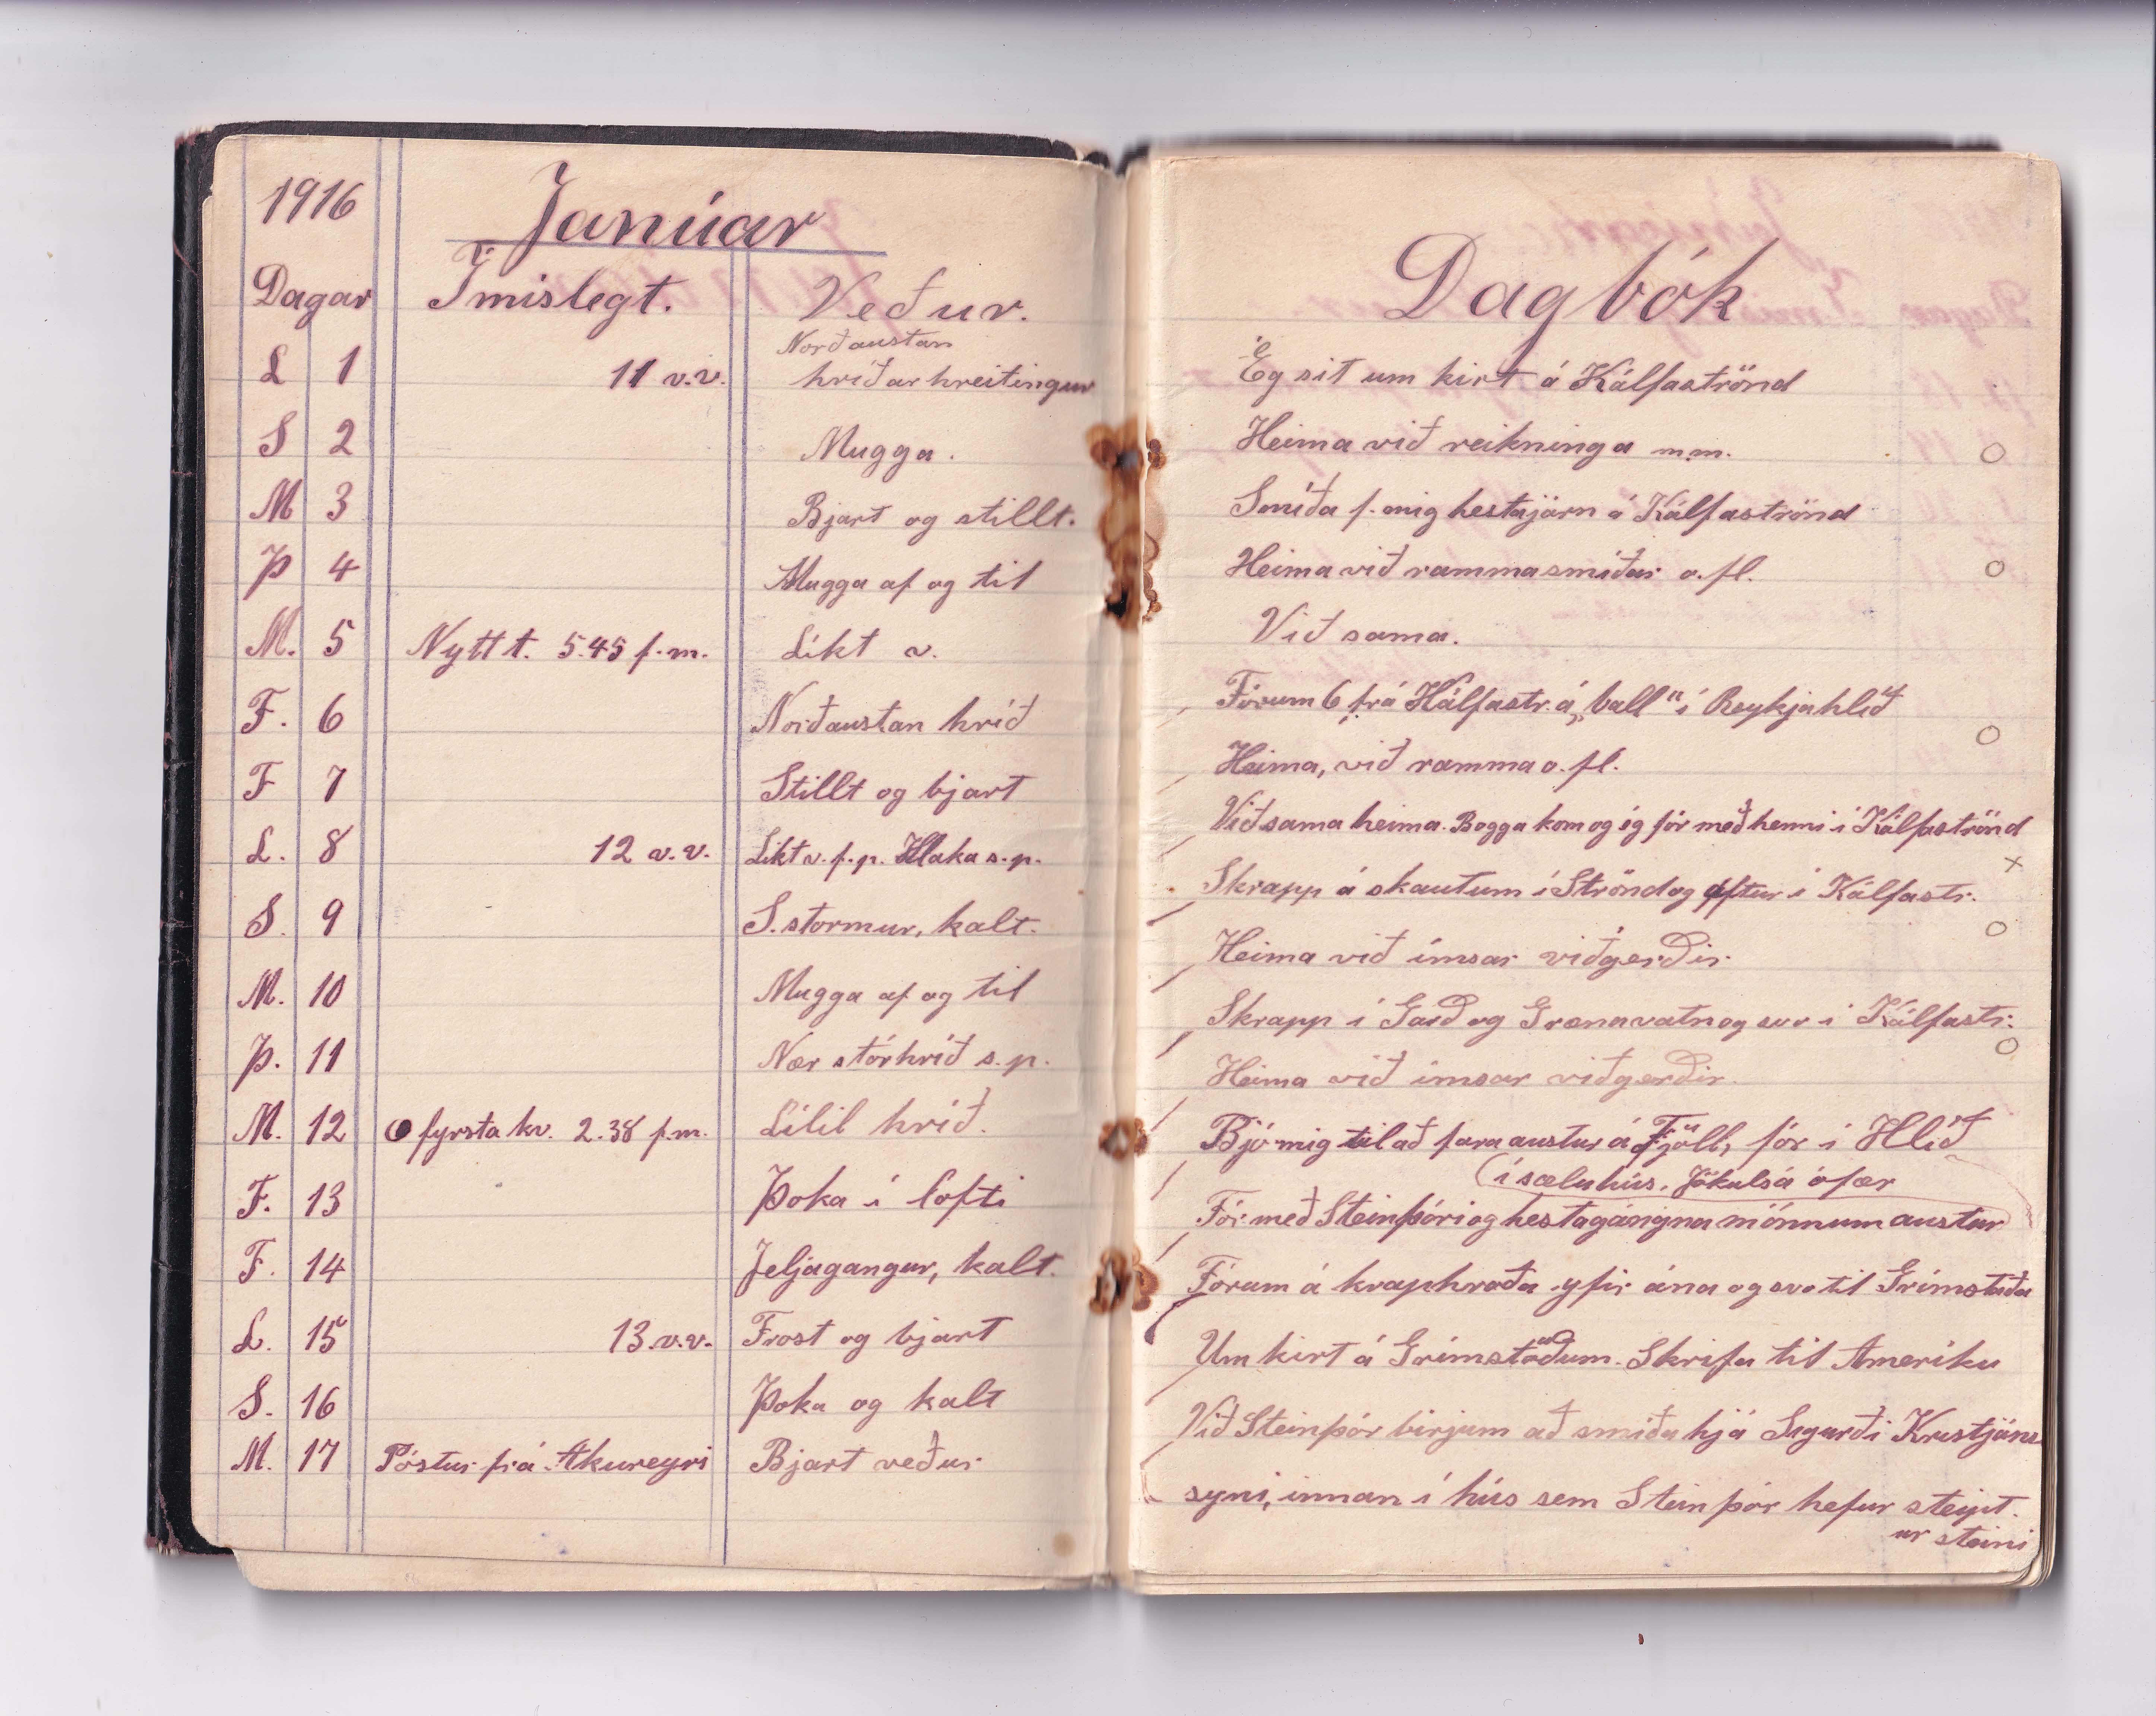 1916
Janúar
Dagar
Ímislegt.
Veður.
Norðaustan
L 1 11 v.v. hríðarhreitingur
S 2 Mugga.
M 3 Bjart og stillt.
Þ 4 Mugga af og til
M. 5 Nýtt t. 5.45 f.m. Líkt v.
F. 6 Norðaustan hríð
F 7 Stillt og bjart
L. 8 12 v.v. Líkt v. f.p. Hlaka s.p.
S. 9 S. stormur, kalt.
M. 10 Mugga af og til
Þ. 11 Nær stórhríð s.p.
M. 12 fyrsta kv. 2.38 f.m. Lítil hríð.
F. 13 Þoka í lofti
F. 14 Jeljagangur, kalt.
L. 15 13.v.v. Frost og bjart
S. 16 Þoka og kalt
M. 17 Póstur frá Akureyri Bjart veður
Dagbók
Ég sit um kirt á Kálfaströnd
Heima við reikninga m.m. o
Smíða f. mig hestajárn á Kálfaströnd
Heima við rammasmíðar o.fl. o
Við sama.
Fórum 6 frá Kálfastr. á „ball" í Reykjahlíð
o
Heima, við ramma o.fl.
Við sama heima. Bogga kom og ég fór með henni í Kálfaströnd
x
Skrapp á skautum í Strönd og aftur í Kálfastr.
o
Heima við ímsar viðgerðir
Skrapp í Garð og Grænavatn og svo í Kálfastr.
o
Heima við ímsar viðgerðir.
Bjó mig til að fara austur á Fjöll, fór í Hlíð
(í sæluhús. Jökulsá ófær
Fór með Steinþóri og hestagángna mönnum austur
Fórum á kraphroða yfir ána og svo til Grímstaða
Um kirt á Grímstöðum. Skrifa til Ameríku
Við Steinþór birjum að smíða hjá Sigurði Kristjáns
syni, innan í hús sem Steinþór hefur steypt.
úr steini